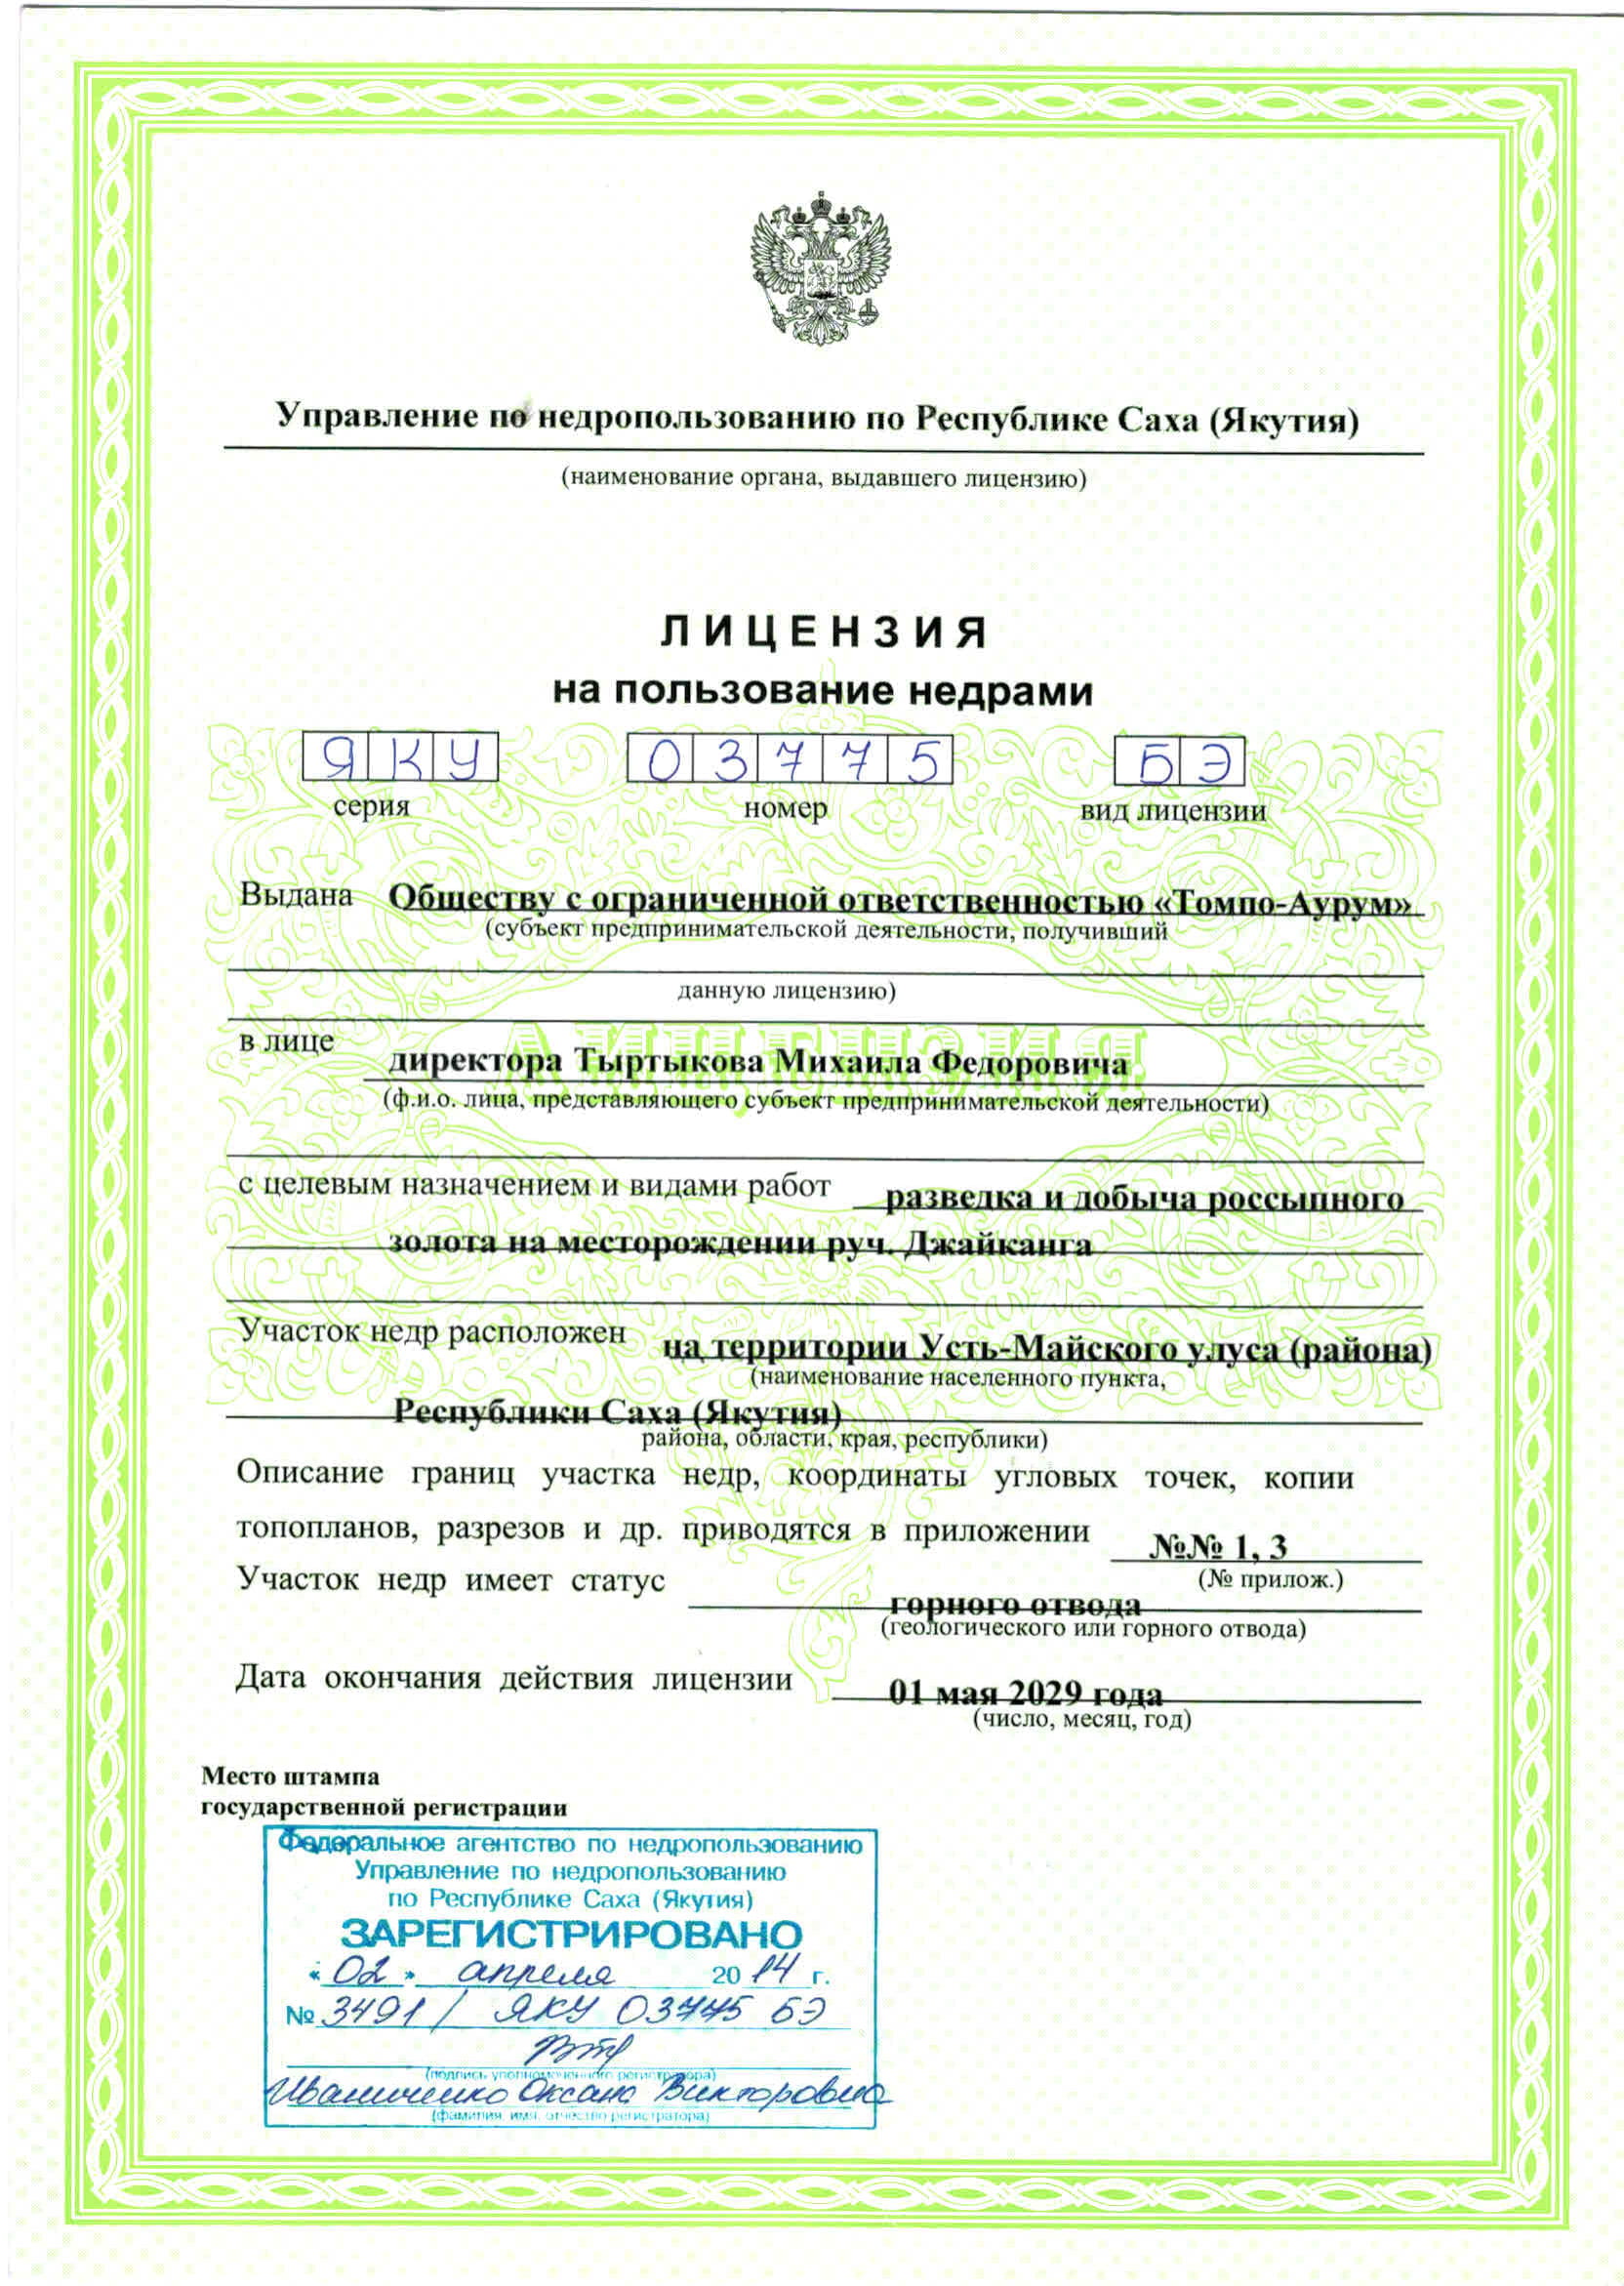 Управление по недропользованию по Республике Саха (Якутия)
(наименование органа, выдавшего лицензию)
ЛИЦЕНЗИЯ
на пользование недрами
ЯКУ 03775 БЭ
серия номер вид лицензии
Выдана Обществу с ограниченной ответственностью «Томпо-Аурум»
(субъект предпринимательской деятельности, получивший
данную лицензию)
ЛИЦЕНЗИЯ
в лице директора Тыртыкова Михаила Федоровича
(ф.и.о. лица, представляющего субъект предпринимательской деятельности)
с целевым назначением и видами работ разведка и добыча россыпного
золота на месторождении руч. Джайканга
Участок недр расположен на территории Усть-Майского улуса (района)
(наименование населенного пункта,
Республики Саха (Якутия)
района, области, края, республики)
Описание границ участка недр, координаты угловых точек, копии
топопланов, разрезов и др. приводятся в приложении №№ 1, 3
(№ прилож.)
Участок недр имеет статус горного отвода
(геологического или горного отвода)
Дата окончания действия лицензии 01 мая 2029 года
(число, месяц, год)
Место штампа
государственной регистрации
Федеральное агентство по недропользованию
Управление по недропользованию
по Республике Саха (Якутия)
ЗАРЕГИСТРИРОВАНО
«02» апреля 2014 г.
№ 3491 / ЯКУ 03775 БЭ
(подпись уполномоченного регистратора)
Оксана Викторовна
(фамилия, имя, отчество регистратора)